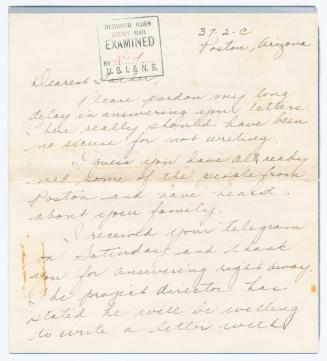 DETAINED ALIEN
ENEMY MAIL
EXAMINED
BY
U.S.I. & N.S.
37-2-C
Poston, Arizona
Dearest Father,
Please pardon my long
delay in answering your letters.
There really should have been
no excuse for not writing.
I guess you have already
met some of the people from
Poston and have heard
about your family.
I received your telegram
on Saturday and thank
you for answering right away.
The project director has
stated he will be willing
to write a letter with